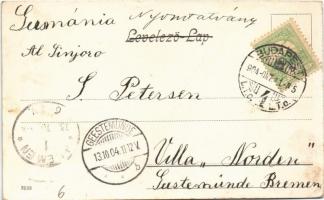 Germánia Nyomtatvány
Levelező-Lap
Al Sinjoro
S. Petersen
Villa „Norden"
Geestemünde Bremen
BUDAPEST
GEESTEMÜNDE
13.10.04.11-12V.
* b
BREMEN
1
6